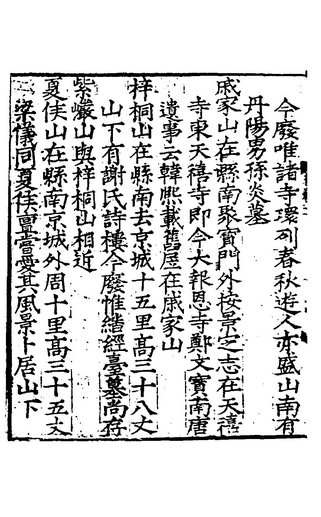 今廢唯諸寺環列春秋遊人亦盛山南有
丹陽男孫炎墓
戚家山在縣南聚寳門外按景定志在天禧
寺東天禧寺即今大報恩寺鄭文寳南唐
遺事云韓熙載舊居在戚家山
梓桐山在縣南去京城十五里高三十八丈
山下有謝氏詩樓今廢惟繙經臺墓尚存
紫巖山與梓桐山相近
夏侯山在縣南京城外周十里高三十五丈
梁儀同夏侯亶嘗愛其風景卜居山下